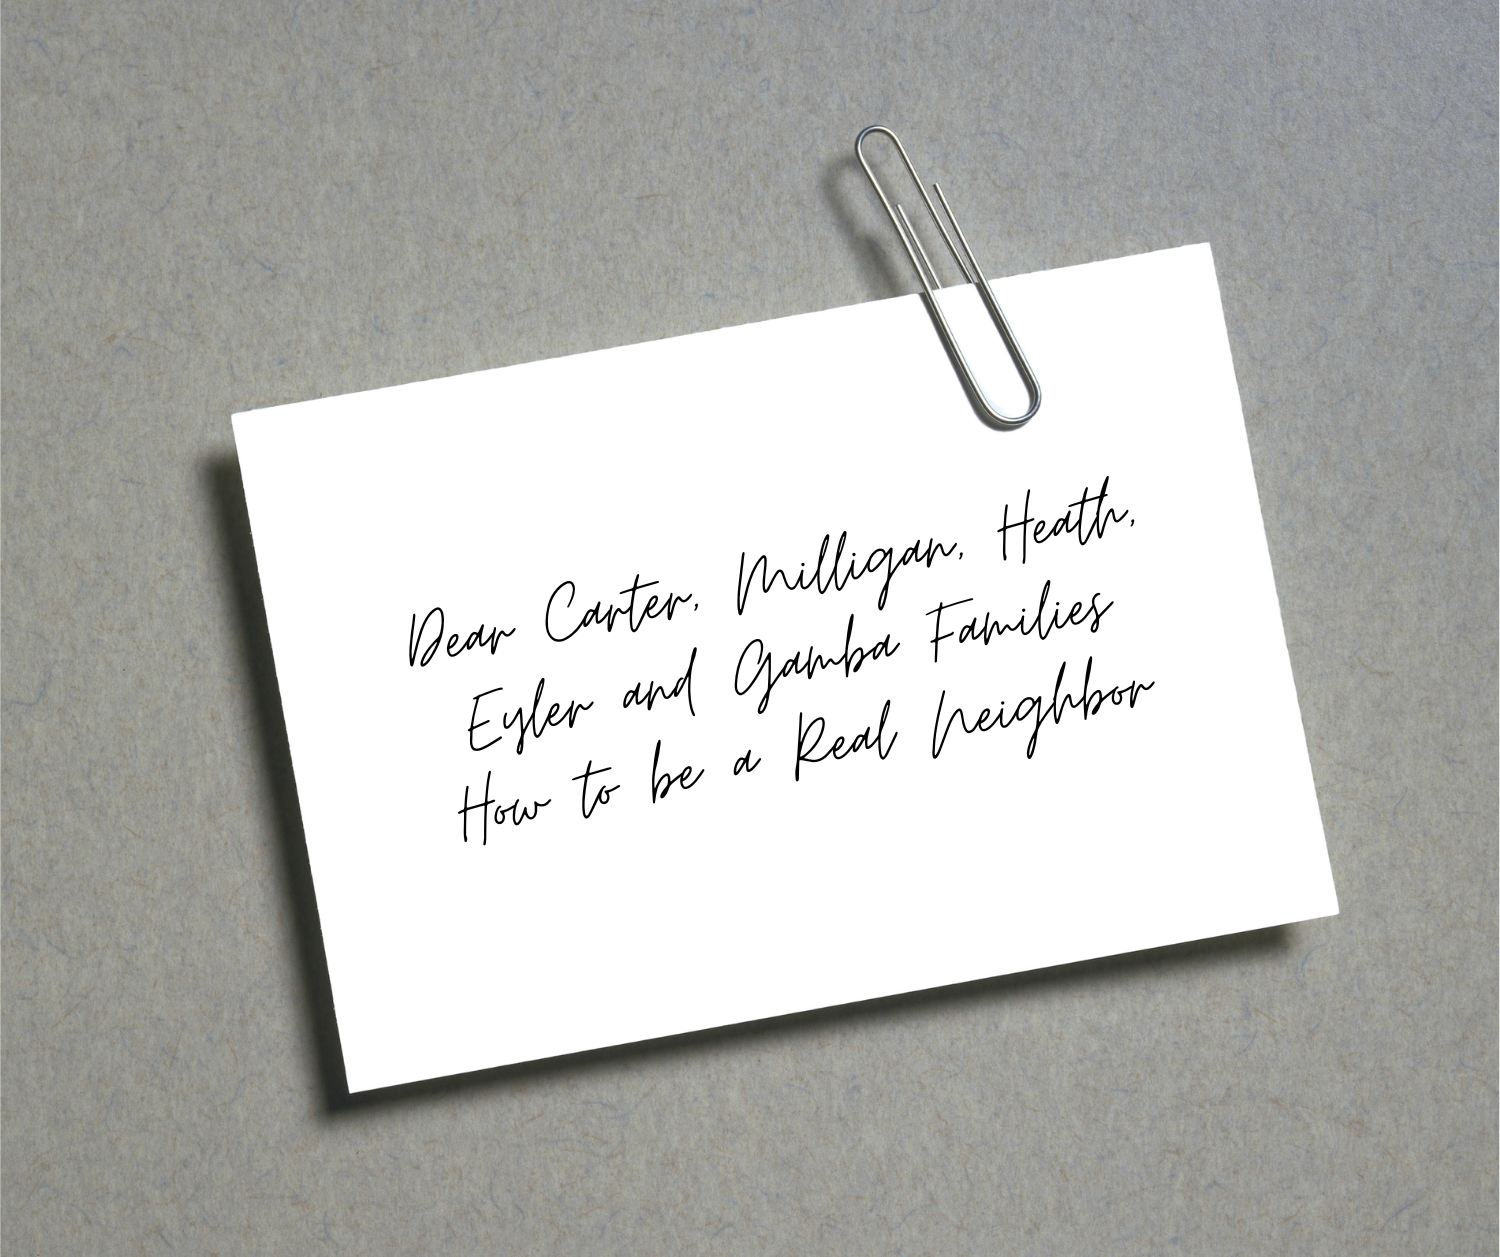 Dear Carter, Milligan, Heath,
Eyler and Gamba Families
How to be a Real Neighbor